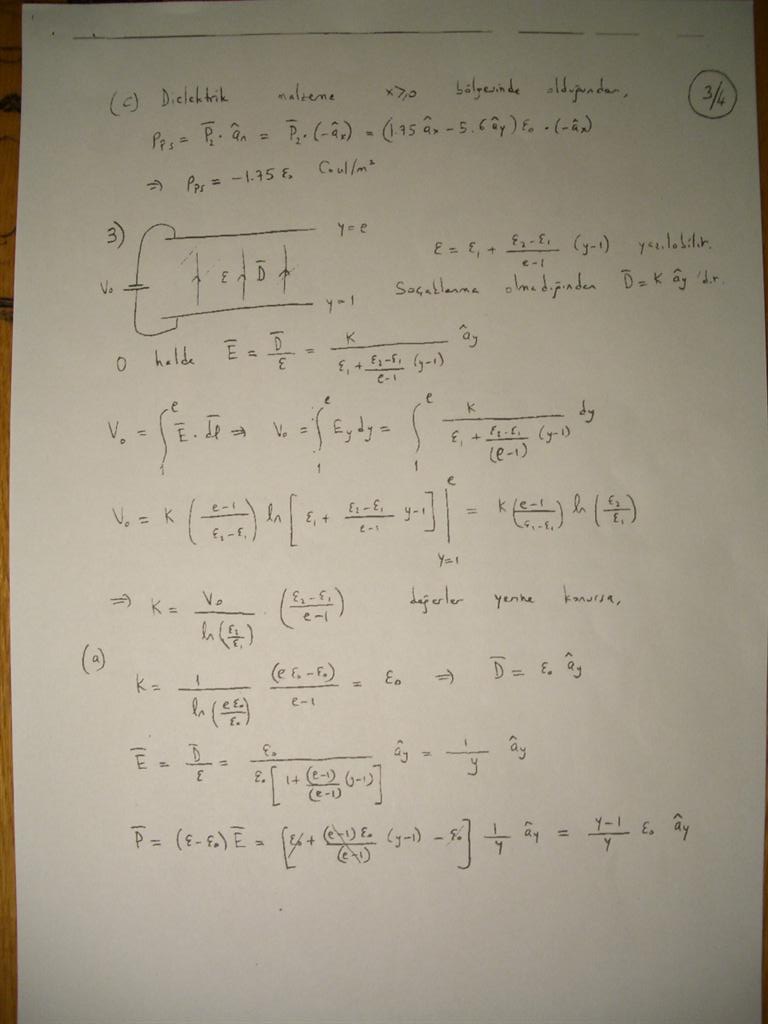 (c) Dielektrik malzeme x≥0 bölgesinde olduğundan, 3/4
ρps = P̄₂ · âₙ = P̄₂ · (-âₓ) = (1.75 âₓ - 5.6 ây) ε₀ · (-âₓ)
⇒ ρps = -1.75 ε₀ Coul/m²
3) y=e
V₀ ε D̄ ε = ε₁ + (ε₂-ε₁)/(e-1) (y-1) yazılabilir.
y=1 Saçaklanma olmadığından D̄ = K ây 'dir.
O halde Ē = D̄/ε = K/(ε₁ + (ε₂-ε₁)/(e-1) (y-1)) ây
V₀ = ∫₁ᵉ Ē · dl̄ ⇒ V₀ = ∫₁ᵉ Ey dy = ∫₁ᵉ K/(ε₁ + (ε₂-ε₁)/(e-1) (y-1)) dy
V₀ = K ((e-1)/(ε₂-ε₁)) ln [ε₁ + (ε₂-ε₁)/(e-1) y-1] |ᵉ y=1 = K ((e-1)/(ε₁-ε₁)) ln (ε₂/ε₁)
⇒ K = V₀/ln(ε₂/ε₁) · ((ε₂-ε₁)/(e-1)) değerler yerine konursa,
(a)
K = 1/ln(eε₀/ε₀) (eε₀-ε₀)/(e-1) = ε₀ ⇒ D̄ = ε₀ ây
Ē = D̄/ε = ε₀/(ε₀[1 + (e-1)/(e-1) (y-1)]) ây = 1/y ây
P̄ = (ε-ε₀) Ē = [ε₀ + (e-1)ε₀/(e-1) (y-1) - ε₀] 1/y ây = (y-1)/y ε₀ ây